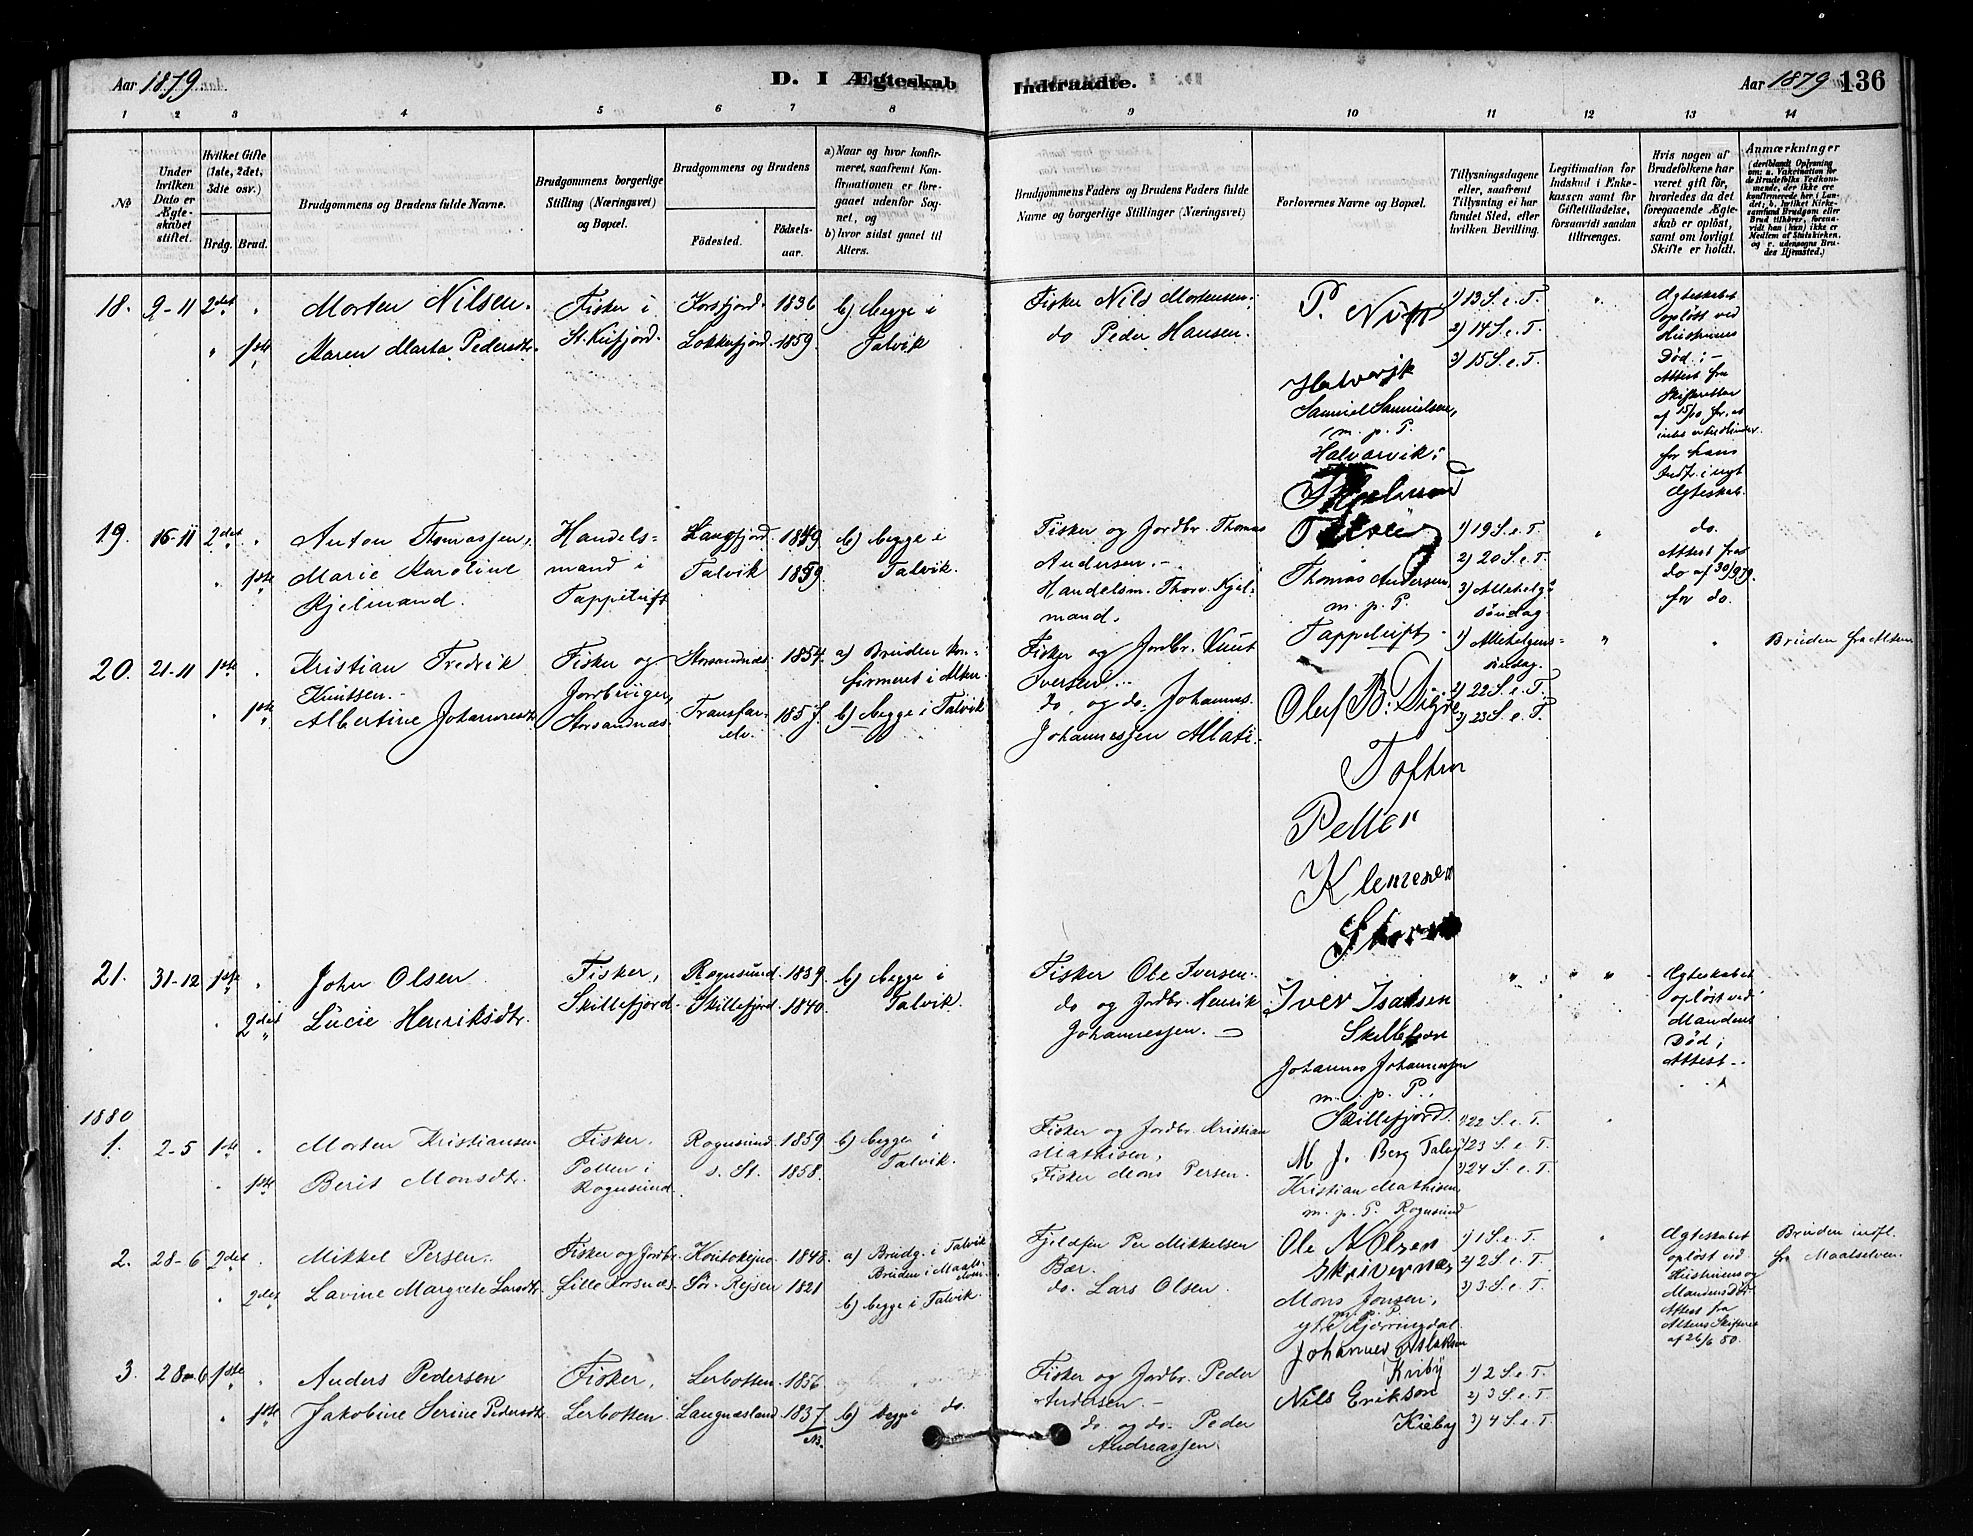 Aar 1879.
D. I Ægteskab
Indtraadte.
Aar 1879
136
1 2 3 4 5 6 7 8 9 10 11 12 13 14
No
Under hvilken Dato er Ægteskabet stiftet.
Hvilket Gifte (1ste, 2det, 3die osv.)
Brdg. Brud.
Brudgommens og Brudens fulde Navne.
Brudgommens borgerlige Stilling (Næringsvei) og Bopæl.
Brudgommens og Brudens
Fødested.
Fødselsaar.
a) Naar og hvor konfirmeret, saafremt Konfirmationen er foregaaet udenfor Sognet, og
b) hvor sidst gaaet til Alters.
Brudgommens Faders og Brudens Faders fulde Navne og borgerlige Stillinger (Næringsvei)
Forlovernes Navne og Bopæl.
Tillysningsdagene eller, saafremt Tillysning ei har fundet Sted, efter hvilken Bevilling.
Legitimation for Indskud i Enkekassen samt for Giftetilladelse, forsaavidt saadan tiltrænges.
Hvis nogen af Brudefolkene har været gift før, hvorledes da det foregaaende Ægteskab er opløst, samt om lovligt Skifte er holdt.
Anmærkninger
18. 9-11 2det Morten Nilsen. Fisker i Korsfjord. 1836 b) begge i
1ste Karen Marta Pedersdtr. St. Kufjord. Lokkefjord. 1859. Talvik
Fisker Nils Mortensen.
do Peder Hansen.
Samuel Samuelsen,
m. p. P.
Halvarvik.
1) 13 S. e. T.
2) 14 S. e. T.
3) 15 S. e. T.
Ægteskabet
opløst ved
Hustruens
Død: -
Attest fra
Skifteretten
af 15/10
for hans
Indtr. i nyt
Ægteskab.
19. 16-11 2det Anton Thomassen, Handels- Langfjord 1849 b) begge i
1ste Marie Karoline mand i Talvik 1859. Talvik.
Kjelmand. Tappeluft
Fisker og Jordbr. Thomas
Andersen. -
Handelsm. Thorv. Kjel-
mand.
Thomas Andersen
m. p. P.
Tappeluft
1) 19 S. e. T.
2) 20 S. e. T.
3) Allehelg.
søndag.
do.
Attest fra
do af 30/9 79.
for do.
20. 21-11 1ste Kristian Fredrik Fisker og Storsandnæs. 1854. a) Bruden kon-
Knutsen. Jordbruger, firmeret i Alten.
1ste Albertine Johannesdtr. Storsandnæs. Transfar- 1857. b) begge i Talvik
elv.
Fisker og Jordbr. Knut
Iversen. -
do. og do. Johannes
Johannessen
Oluf B. Digre
Toften
Petter
Klemesen
1) Allehelgens-
søndag.
2) 22 S. e. T.
3) 23 S. e. T.
Bruden fra Alten
21. 31-12 1ste John Olsen Fisker, Rognsund. 1839. b) begge i
2det Lucie Henriksdtr. Skillefjord. Skillefjord 1840. Talvik.
Fisker Ole Iversen.
do og Jordbr. Henrik
Johannessen.
Iver Isaksen
Johannes Johannessen
m. p. P.
Skillefjord.
Ægteskabet
opløst ved
Mandens
Død;
Attest
1880
1. 2-5 1ste Morten Kristiansen Fisker. Rognsund. 1859 b) begge i
1ste Berit Monsdtr. Pollen i s. St. 1858. Talvik.
Rognsund.
Fisker og Jordbr. Kristian
Mathisen,
Fisker Mons Persen.
M J. Berg
Kristian Mathisen,
m. p. P. Rognsund
1) 22 S. e. T.
2) 23 S. e. T.
3) 24 S. e. T.
2. 28-6 2det Mikkel Persen. Fisker og Jordbr. Koutokejno 1848. a) Brudg. i Talvik
Bruden i Maals-
elven.
2det Lavine Margrete Larsdtr. Lille Korsnæs. Sør-Rejsen 1821 b) begge i Talvik.
Fjeldfin Per Mikkelsen
Bær.
do. Lars Olsen.
Ole Olsen
Mons Jonsen,
m. p. P.
1) 1 S. e. T.
2) 2 S. e. T.
3) 3 S. e. T.
Ægteskabet
opløst ved
Hustruens og
Mandens Død
Attest fra
Altens Skifteret
af 26/6 80.
Bruden indfl.
fra Maalselven
3. 28-6 1ste Anders Pedersen Fisker, Lerbotten 1856
1ste Jakobine Serine Pedersdtr. Lerbotten. Langnæsland. 1837. b) begge do.
Fisker og Jordbr. Peder
Andersen. -
do og do. Peder
Andreassen.
Johannes
Nils Erikson
1) 2 S. e. T.
2) 3 S. e. T.
3) 4 S. e. T.